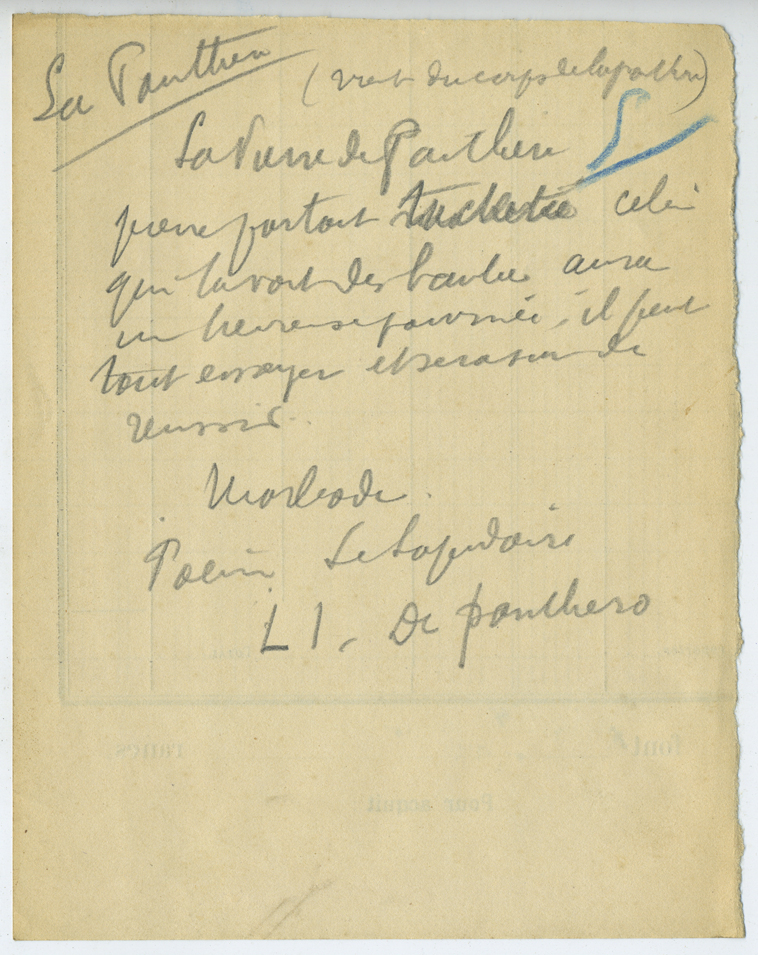 La Panthère
(vient du corps de la panthère)
La Pierre de Panthère
pierre portant tachetée celui
qui la voit dès l'aube aura
un heureuse journée, il peut
tout essayer et sera sur de
reussir.
Marbode.
Poème Le Lapidaire
L I, De panthero